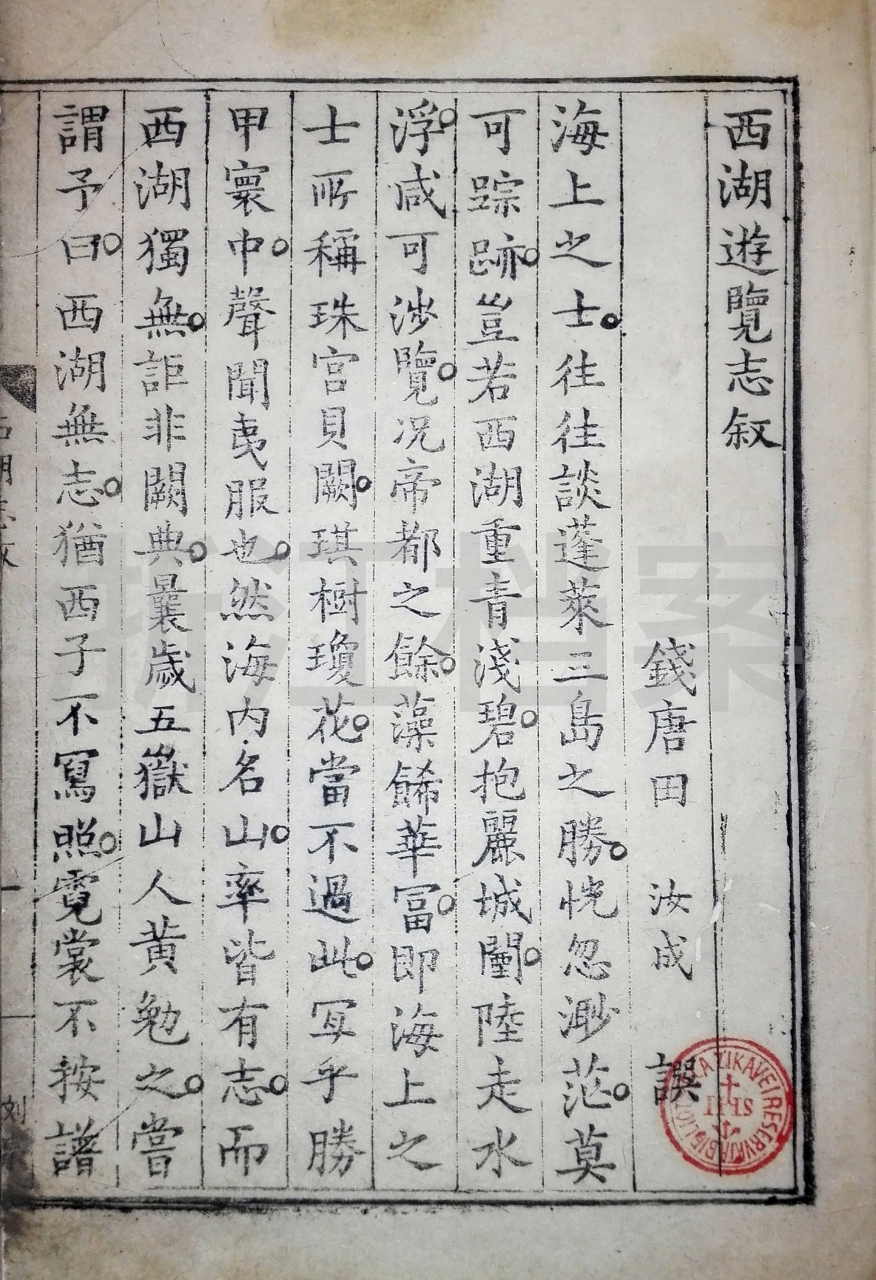 西湖遊覽志叙
錢唐田 汝成 譔
海上之士往往談蓬萊三島之勝恍忽渺茫莫
可踪跡豈若西湖重青淺碧抱麗城闉陸走水
浮咸可涉覽况帝都之餘藻餙華冨即海上之
士所稱珠宫貝闕琪樹瓊花當不過此冝乎勝
甲寰中聲聞夷服也然海内名山率皆有志而
西湖獨無詎非闕典曩歲五嶽山人黄勉之嘗
謂予曰西湖無志猶西子不冩照霓裳不按譜
浙江档案
IHS